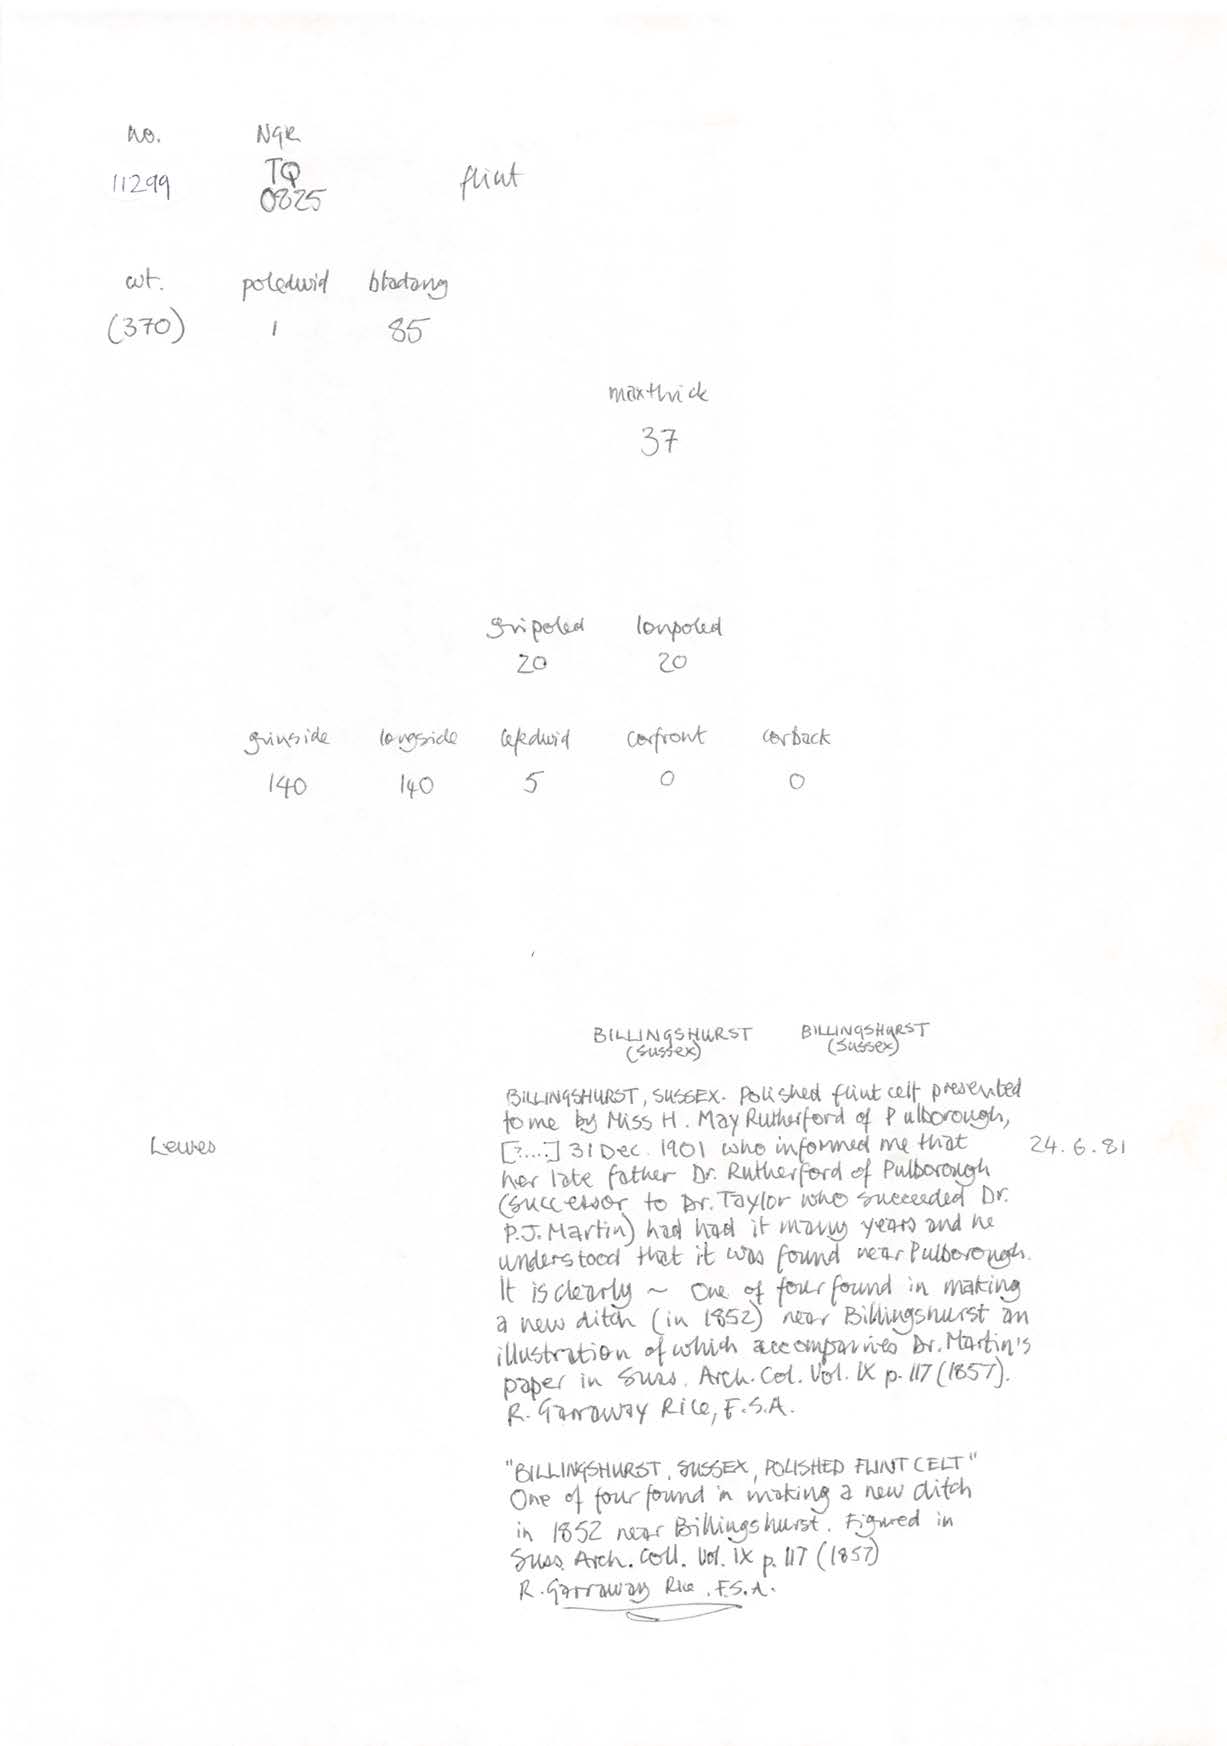 no. NGR
11299 TQ 0825 flint
wt. poledwid bladang
(370) 1 85
maxthick
37
gripoled lonpoled
20 20
grinside longside lefedwid corfront corback
140 140 5 0 0
BILLINGSHURST BILLINGSHURST
(Sussex) (Sussex)
BILLINGSHURST, SUSSEX. Polished flint celt presented
to me by Miss H. May Rutherford of Pulborough,
Lewes [?....] 31 Dec. 1901 who informed me that 24.6.81
her late father Dr. Rutherford of Pulborough
(successor to Dr. Taylor who succeeded Dr.
P.J. Martin) had had it many years and he
understood that it was found near Pulborough.
It is clearly ~ One of four found in making
a new ditch (in 1852) near Billingshurst an
illustration of which accompanies Dr. Martin's
paper in Suss. Arch. Col. Vol. IX p. 117 (1857).
R. Garraway Rice, F.S.A.
"BILLINGSHURST, SUSSEX, POLISHED FLINT CELT"
One of four found in making a new ditch
in 1852 near Billingshurst. Figured in
Suss. Arch. Coll. Vol. IX p. 117 (1857)
R. Garraway Rice. F.S.A.